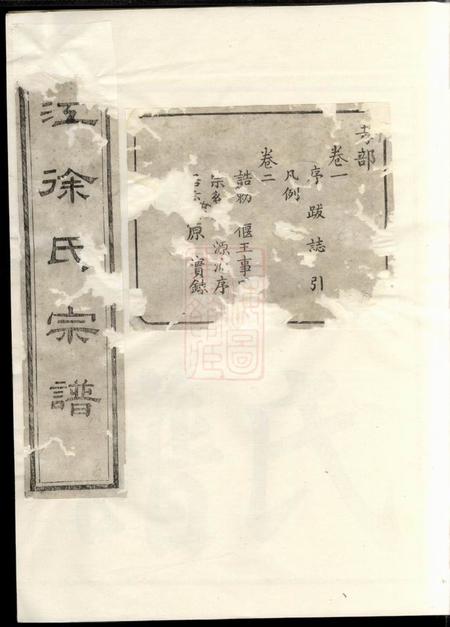 江徐氏宗譜
部
卷一
序跋誌引
凡例
卷二
誥勅 偃王事
宗 源流序
原 實錄